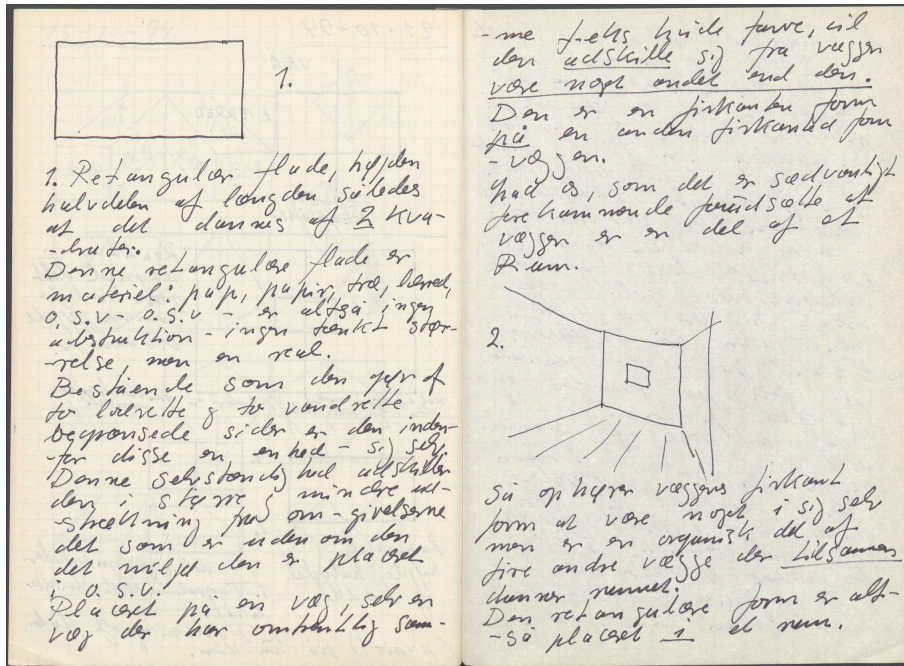 1.
1. Retangulær flade, højden
halvdelen af længden således
at det dannes af 2 kva-
-drater.
Denne retangulære flade er
materiel: pap, papir, træ, lærred,
o.s.v - o.s.v - er altså ingen
abstraktion - ingen tænkt stør-
-relse men en real.
Bestående som den gør af
to lodrette og to vandrette
begrænsede sider er den inden-
-for disse en enhed - sig selv.
Denne selvstændighed adskiller
den i større, mindre ud-
-strækning fra om-givelserne
det som er uden om den
det miljø den er placeret
i o.s.v.
Placeret på en væg, selv en
væg der har omtrentlig sam-
-me f.eks hvide farve, vil
den adskille sig fra væggen
være noget andet end den.
Den er en firkantet form
på en anden firkantet form
- væggen.
Lad os, som det er sædvanligt
forekommende forudsætte at
væggen er en del af et
Rum.
2.
Så ophører væggens firkant
form at være noget i sig selv
men er en organisk del af
fire andre vægge der tilsammen
danner rummet.
Den retangulære form er alt-
-så placeret i et rum.